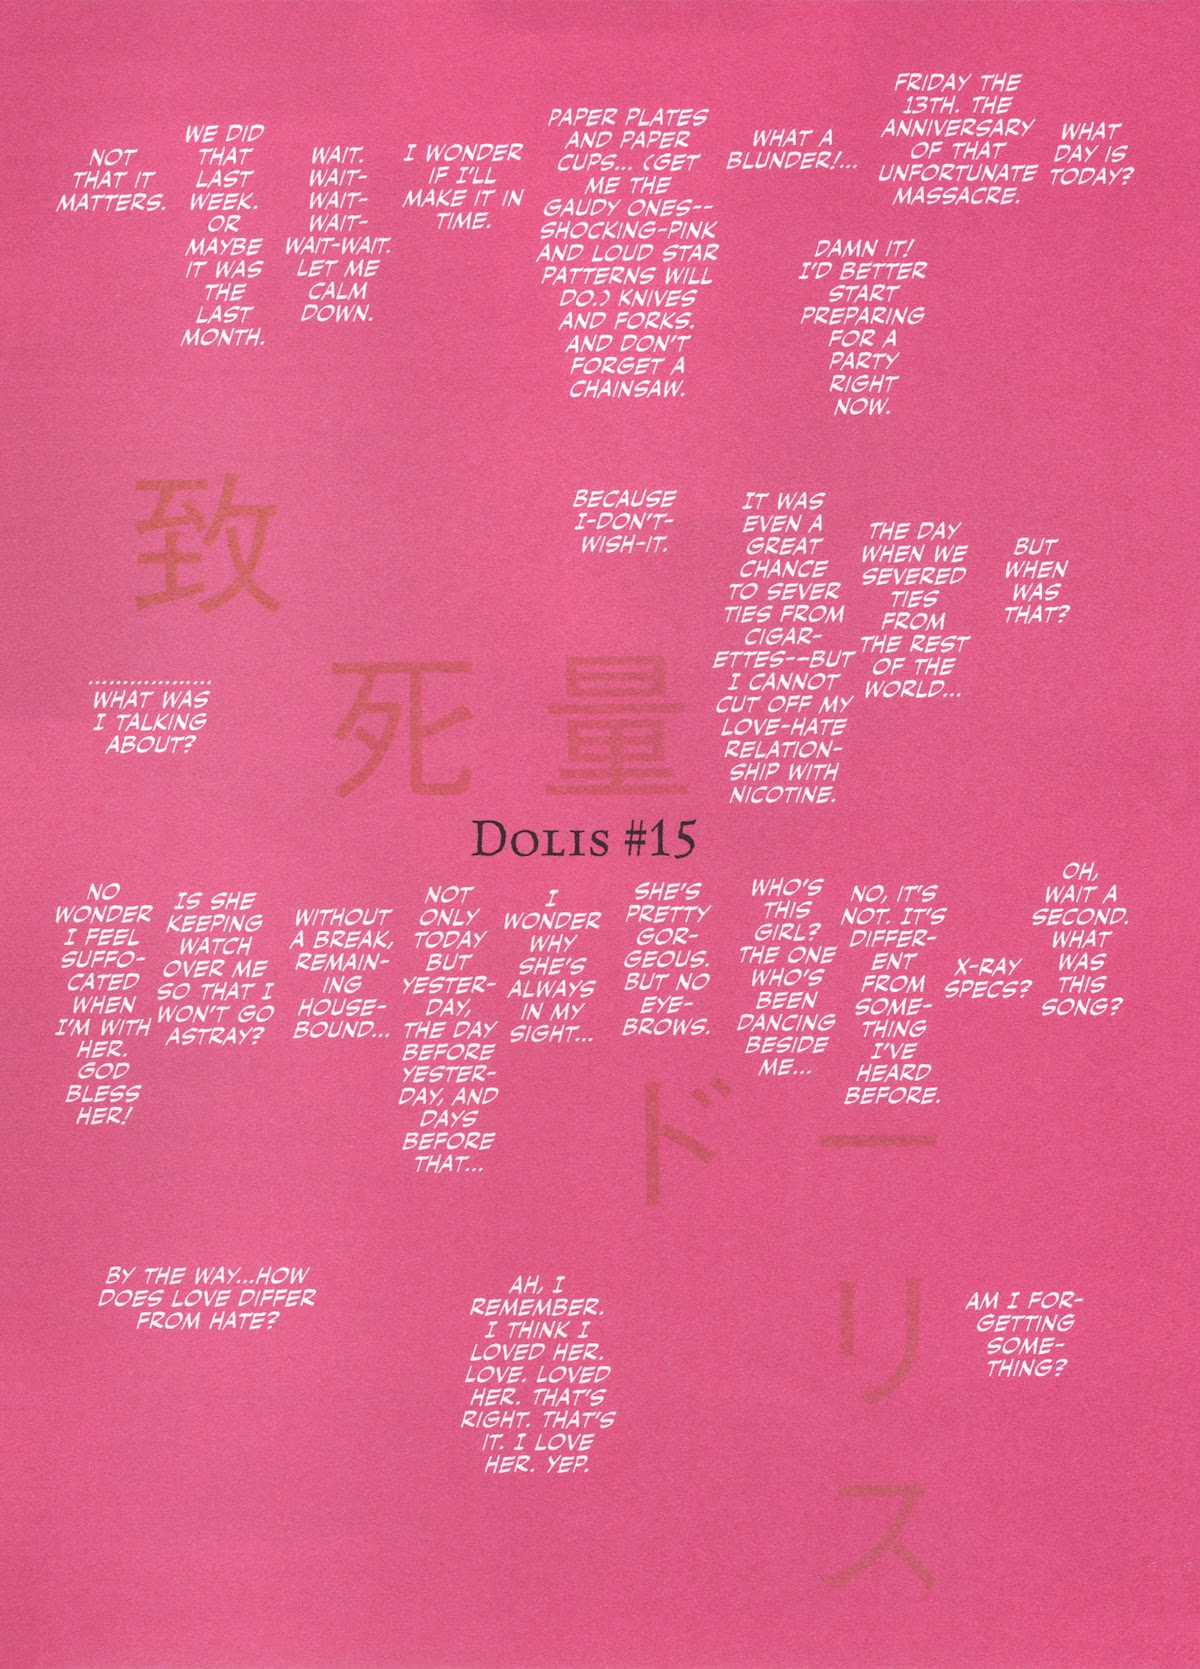 WHAT
DAY IS
TODAY?
FRIDAY THE
13TH. THE
ANNIVERSARY
OF THAT
UNFORTUNATE
MASSACRE.
DAMN IT!
I'D BETTER
START
PREPARING
FOR A
PARTY
RIGHT
NOW.
WHAT A
BLUNDER!...
PAPER PLATES
AND PAPER
CUPS... (GET
ME THE
GAUDY ONES--
SHOCKING-PINK
AND LOUD STAR
PATTERNS WILL
DO.) KNIVES
AND FORKS.
AND DON'T
FORGET A
CHAINSAW.
I WONDER
IF I'LL
MAKE IT IN
TIME.
WAIT.
WAIT-
WAIT-
WAIT-
WAIT-WAIT.
LET ME
CALM
DOWN.
WE DID
THAT
LAST
WEEK.
OR
MAYBE
IT WAS
THE
LAST
MONTH.
NOT
THAT IT
MATTERS.
BUT
WHEN
WAS
THAT?
THE DAY
WHEN WE
SEVERED
TIES
FROM
THE REST
OF THE
WORLD...
IT WAS
EVEN A
GREAT
CHANCE
TO SEVER
TIES FROM
CIGAR-
ETTES--BUT
I CANNOT
CUT OFF MY
LOVE-HATE
RELATION-
SHIP WITH
NICOTINE.
BECAUSE
I-DON'T-
WISH-IT.
致
死量
...................
WHAT WAS
I TALKING
ABOUT?
DOLIS #15
OH,
WAIT A
SECOND.
WHAT
WAS
THIS
SONG?
X-RAY
SPECS?
NO, IT'S
NOT. IT'S
DIFFER-
ENT
FROM
SOME-
THING
I'VE
HEARD
BEFORE.
WHO'S
THIS
GIRL?
THE ONE
WHO'S
BEEN
DANCING
BESIDE
ME...
SHE'S
PRETTY
GOR-
GEOUS.
BUT NO
EYE-
BROWS.
I
WONDER
WHY
SHE'S
ALWAYS
IN MY
SIGHT...
NOT
ONLY
TODAY
BUT
YESTER-
DAY,
THE DAY
BEFORE
YESTER-
DAY, AND
DAYS
BEFORE
THAT...
WITHOUT
A BREAK,
REMAIN-
ING
HOUSE-
BOUND...
IS SHE
KEEPING
WATCH
OVER ME
SO THAT I
WON'T GO
ASTRAY?
NO
WONDER
I FEEL
SUFFO-
CATED
WHEN
I'M WITH
HER.
GOD
BLESS
HER!
ドーリス
AM I FOR-
GETTING
SOME-
THING?
AH, I
REMEMBER.
I THINK I
LOVED HER.
LOVE. LOVED
HER. THAT'S
RIGHT. THAT'S
IT. I LOVE
HER. YEP.
BY THE WAY...HOW
DOES LOVE DIFFER
FROM HATE?